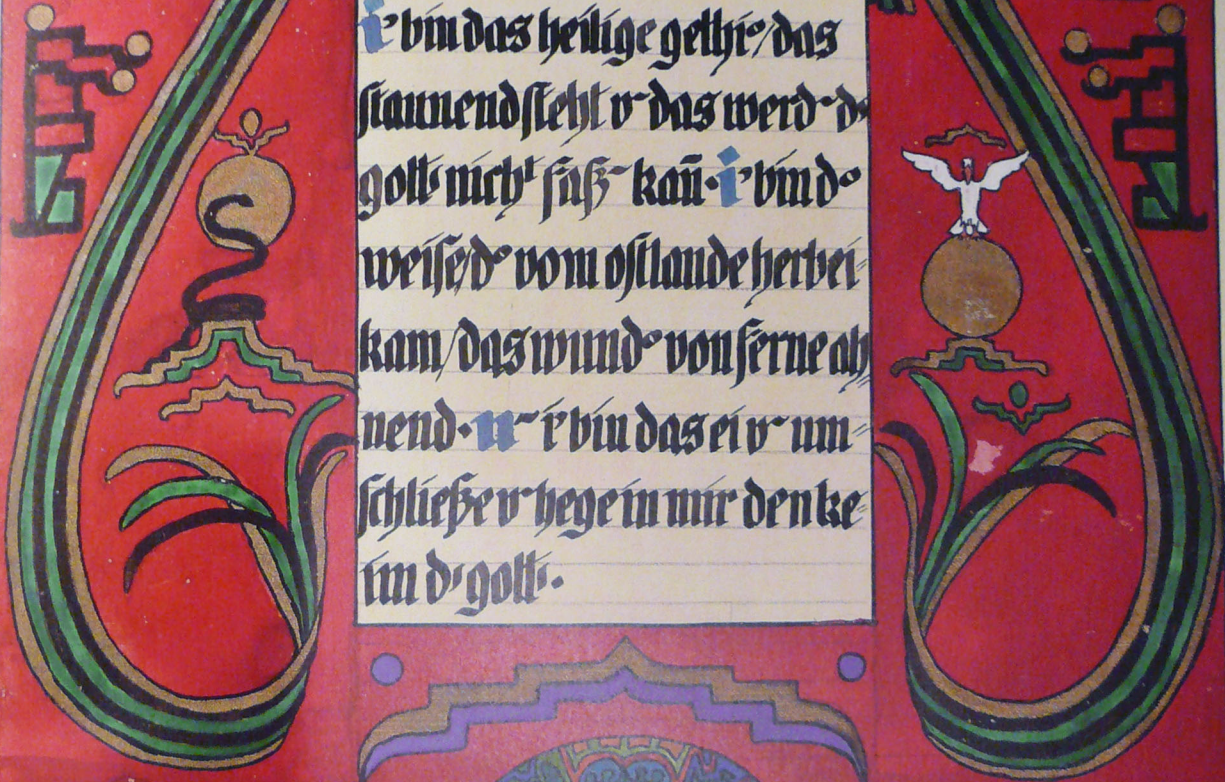 i' bin das heilige gethi°/das
staunend steht v~ das werd~ d's
gott's nich' faß~ kañ · i' bin d°
weise/d° vom ostlande herbei=
kam/das wund° von ferne ah=
nend · u~ i' bin das ei v~ um=
schließe v~ hege in mir den ke=
im d's gott's ·